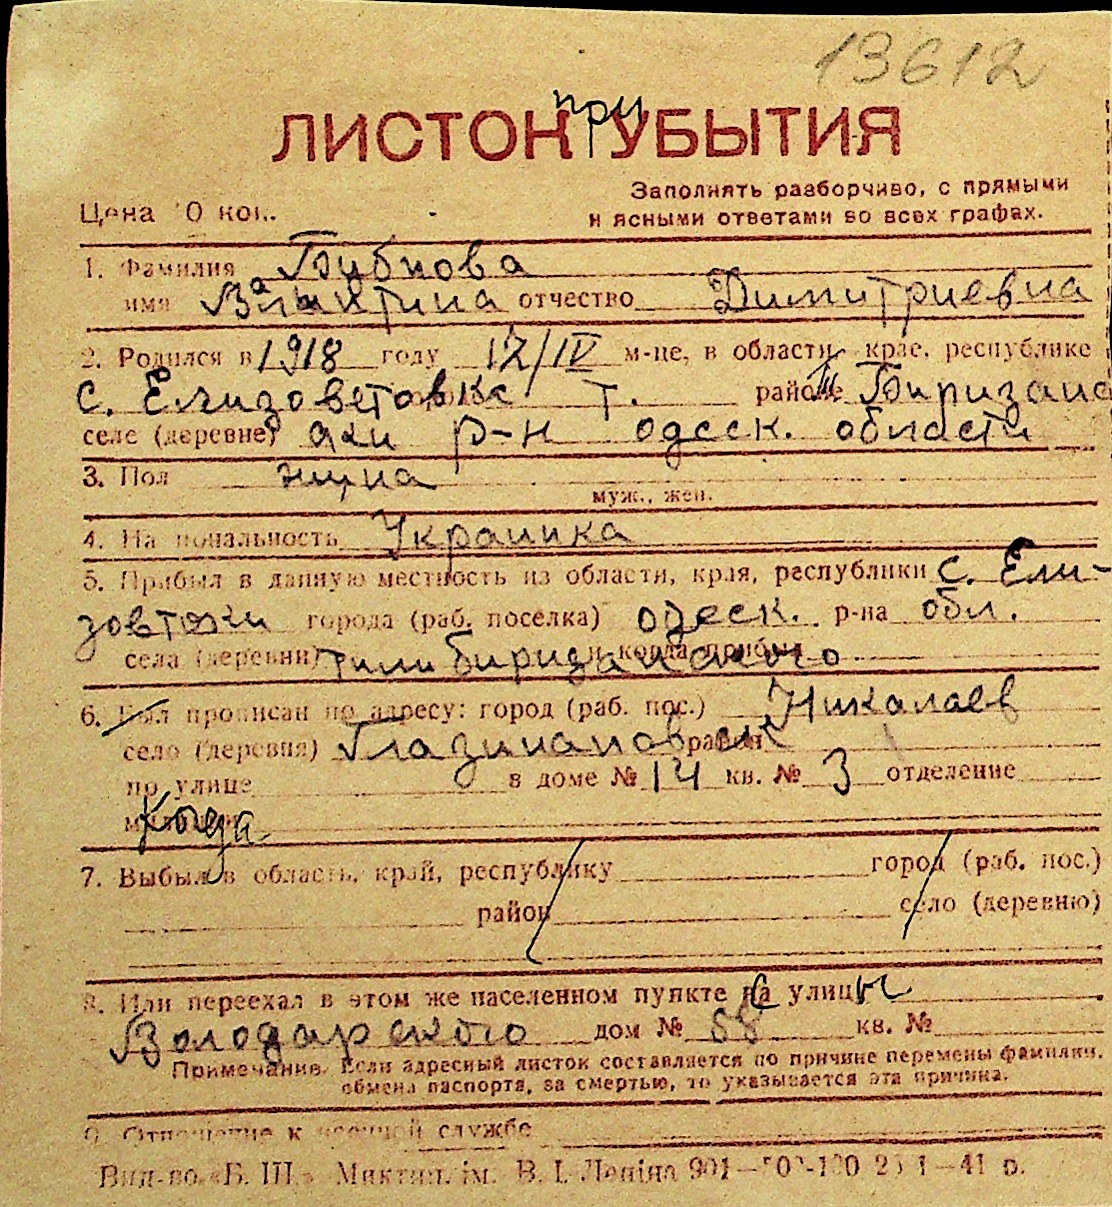 13612
при
ЛИСТОК УБЫТИЯ
Заполнять разборчиво, с прямыми
Цена 0 коп. и ясными ответами во всех графах.
1. Фамилия Бибкова
имя Валнтина отчество Димитриевна
2. Родился в 1918 году 12/IV м-це, в области, крае, республике
с. Елизоветовке т. районе Биризанс
селе (деревне) али р-н одесск. области
3. Пол жцна
муж., жен.
4. Национальность Украинка
5. Прибыл в данную местность из области, края, республики с. Ели-
зовтоки города (раб. поселка) одеск. р-на обл.
села (деревни) и когда прибыл
6. Был прописан по адресу: город (раб. пос.) Николаев
село (деревня) район
по улице в доме № 14 кв. № 3 отделение
милиции Когда
7. Выбыл в область, край, республику город (раб. пос.)
район село (деревню)
8. Или переехал в этом же населенном пункте с улицы
Володарского дом № 68 кв. №
Примечание. Если адресный листок составляется по причине перемены фамилии,
обмена паспорта, за смертью, то указывается эта причина.
9. Отношение к военной службе
Вид-во „Б. Ш.» Миктип. ім. В. І. Леніна 901—500-100 2 1—41 р.